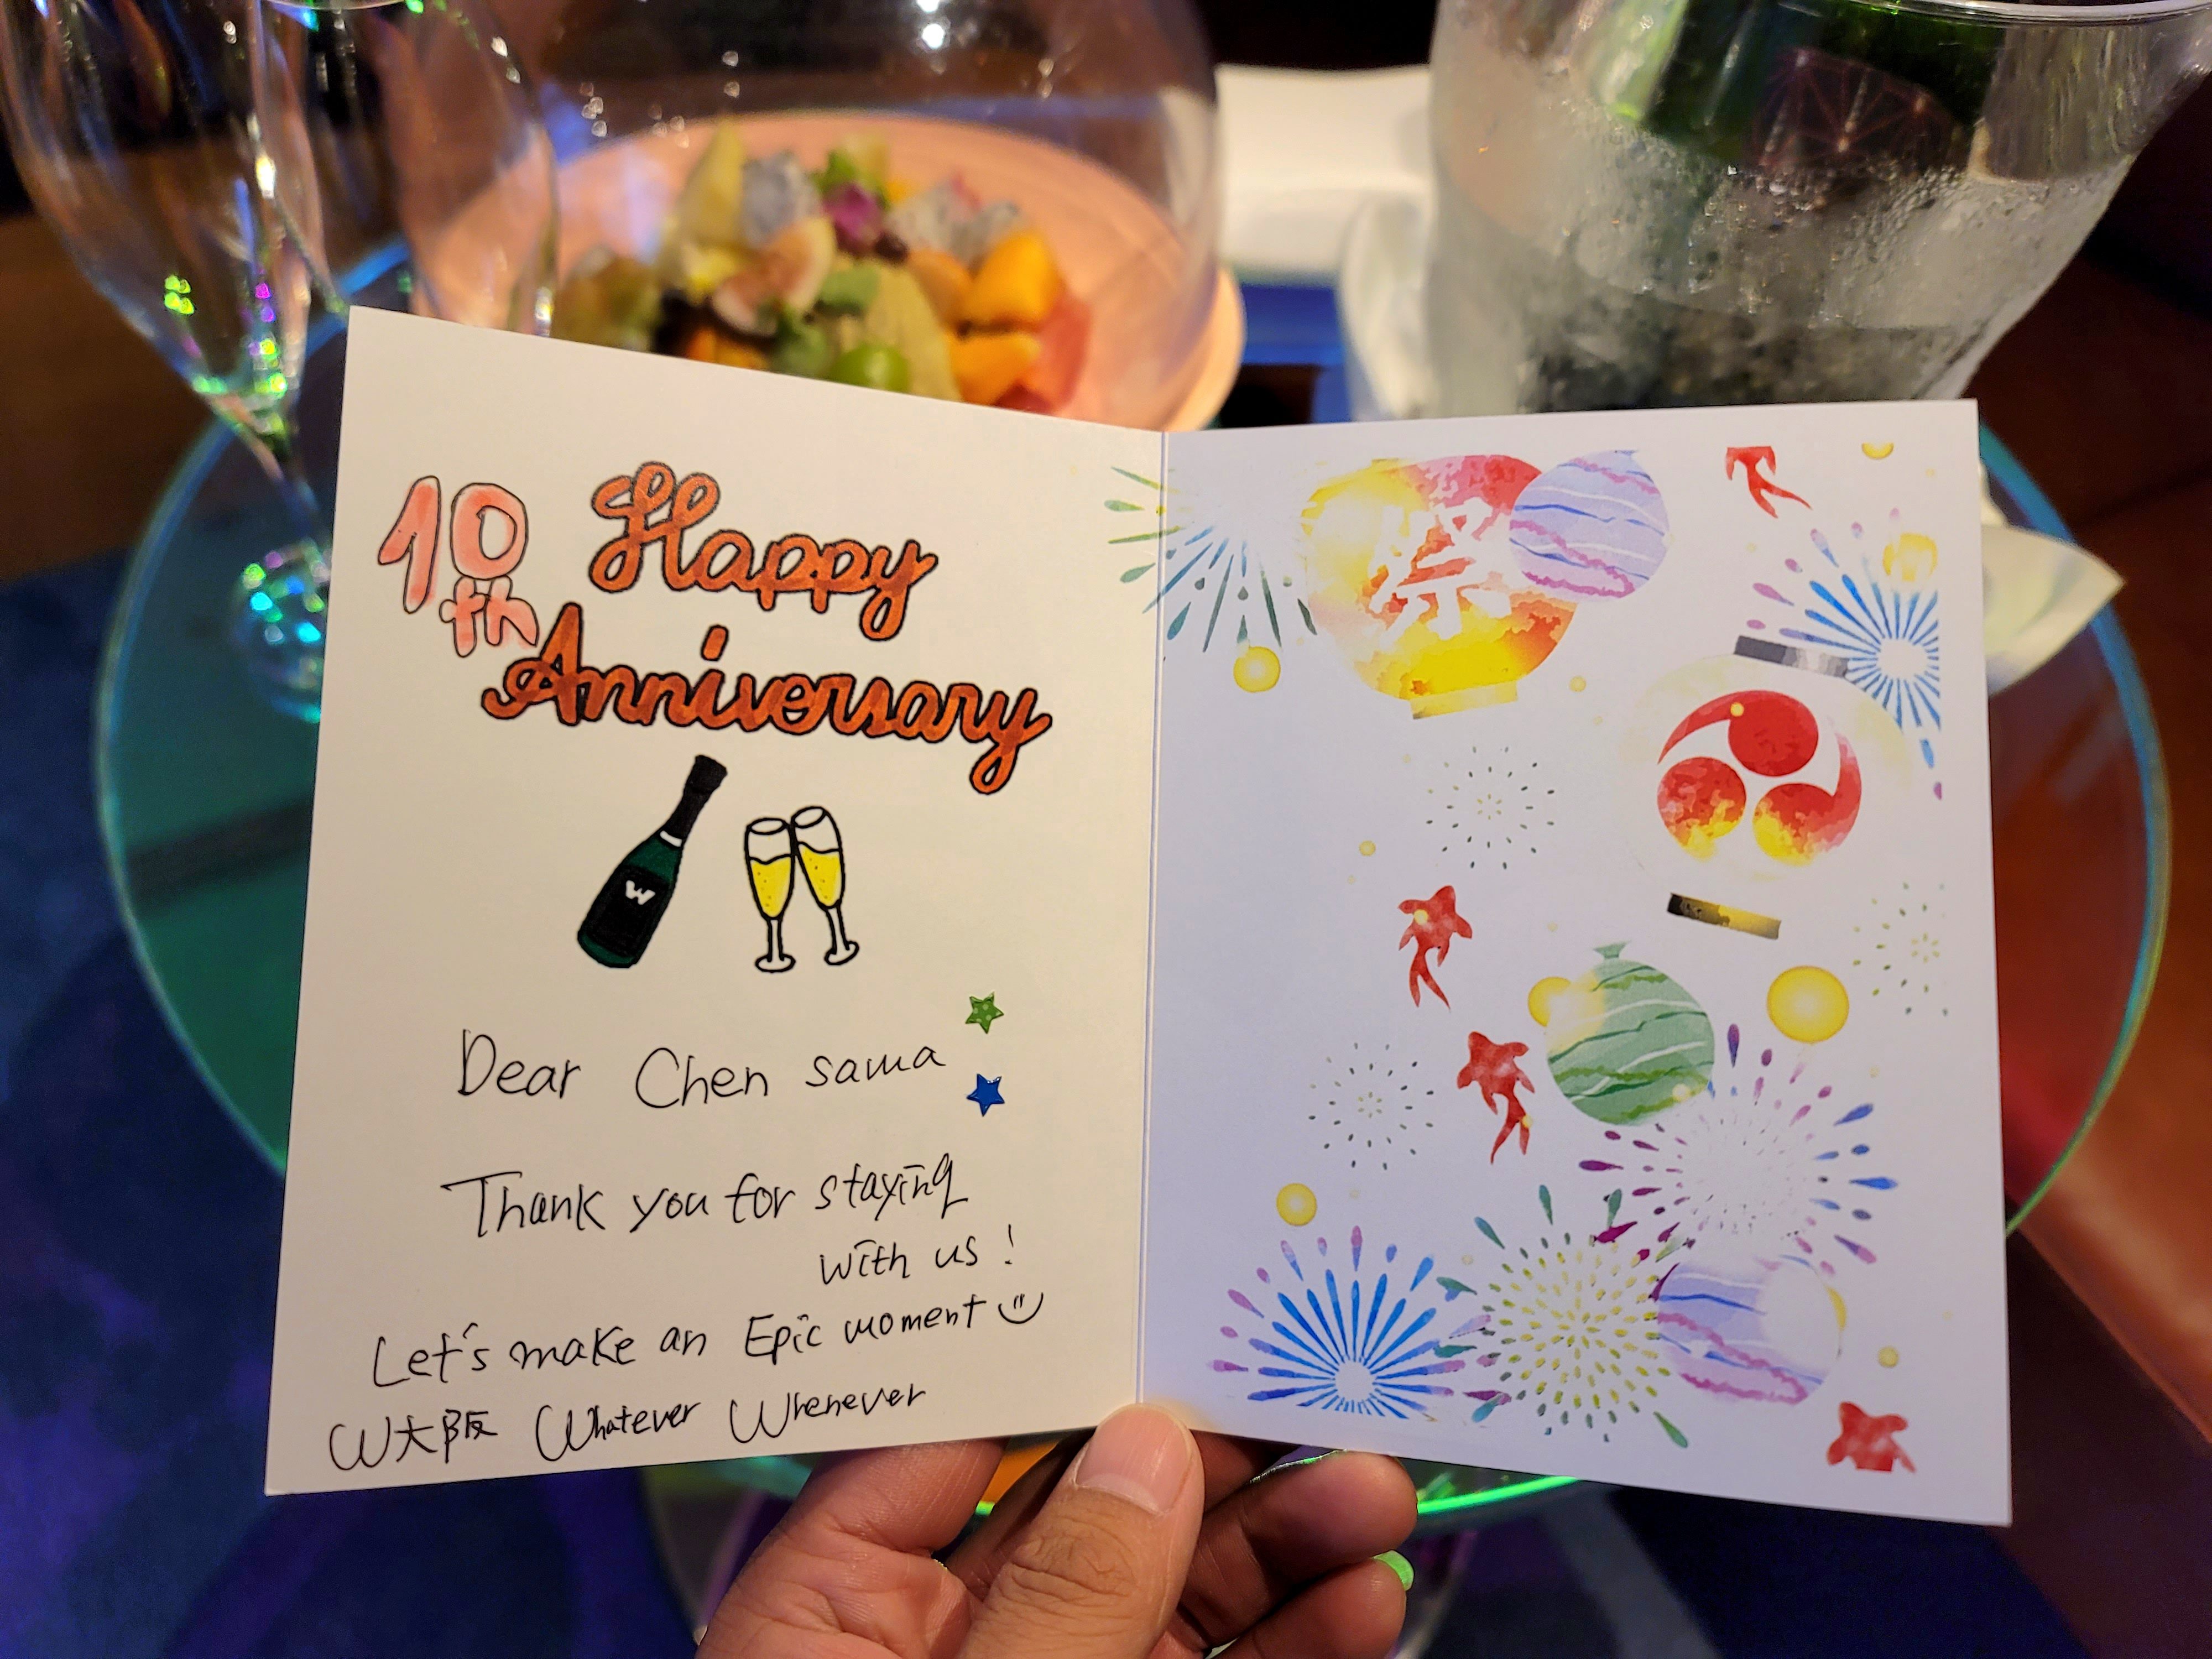 10th Happy
Anniversary
W
Dear Chen sama
Thank you for staying
with us!
Let's make an Epic moment
W大阪 Whatever Whenever
祭